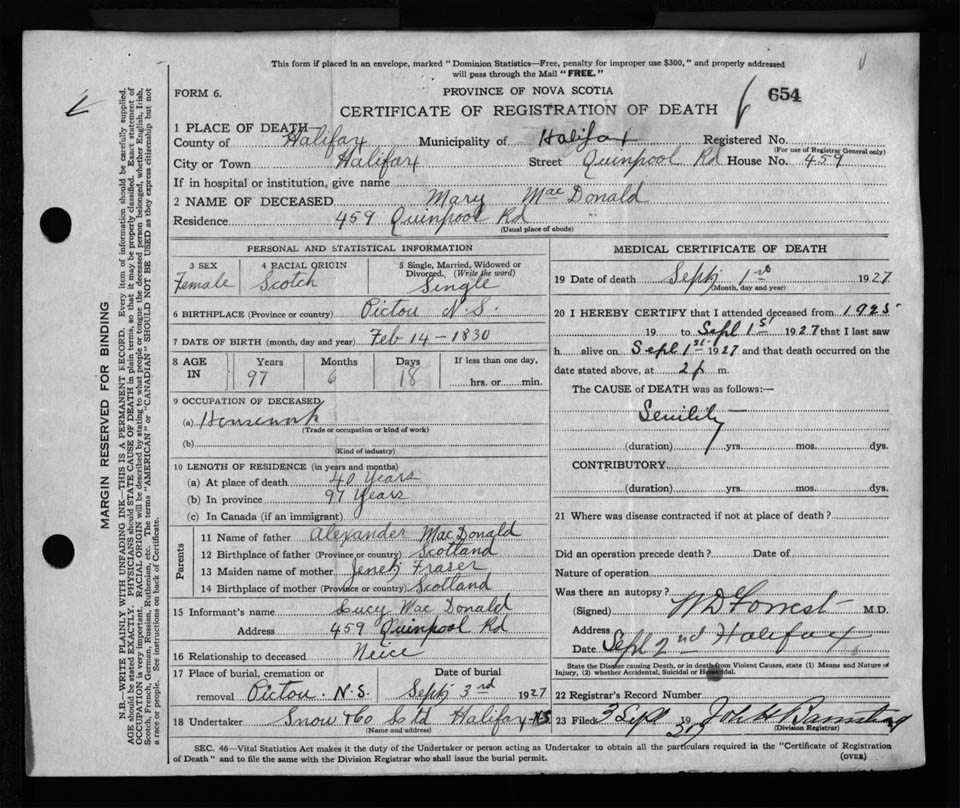 This form if placed in an envelope, marked "Dominion Statistics—Free, penalty for improper use $300," and properly addressed
will pass through the Mail "FREE."
FORM 6.
PROVINCE OF NOVA SCOTIA
CERTIFICATE OF REGISTRATION OF DEATH
654
1 PLACE OF DEATH—
County of Halifax Municipality of Halifax Registered No.
(For use of Registrar General only)
City or Town Halifax Street Quinpool Rd House No. 459
If in hospital or institution, give name
2 NAME OF DECEASED Mary MacDonald
Residence 459 Quinpool Rd
(Usual place of abode)
PERSONAL AND STATISTICAL INFORMATION
3 SEX
Female
4 RACIAL ORIGIN
Scotch
5 Single, Married, Widowed or
Divorced. (Write the word)
Single
6 BIRTHPLACE (Province or country) Pictou N.S.
7 DATE OF BIRTH (month, day and year) Feb 14-1830
8 AGE
IN
Years
97
Months
6
Days
18
If less than one day,
hrs. or min.
9 OCCUPATION OF DECEASED
(a) Housework
(Trade or occupation or kind of work)
(b)
(Kind of industry)
10 LENGTH OF RESIDENCE (in years and months)
(a) At place of death 40 Years
(b) In province 97 Years
(c) In Canada (if an immigrant)
Parents
11 Name of father Alexander MacDonald
12 Birthplace of father (Province or country) Scotland
13 Maiden name of mother Fraser
14 Birthplace of mother (Province or country) Scotland
15 Informant's name Lucy MacDonald
Address 459 Quinpool Rd
16 Relationship to deceased Neice
17 Place of burial, cremation or
removal Pictou. N.S.
Date of burial
Sept 3rd 1927
18 Undertaker Snow & Co Ltd Halifax N.S
(Name and address)
MEDICAL CERTIFICATE OF DEATH
19 Date of death Sept 1st 1927
(Month, day and year)
20 I HEREBY CERTIFY that I attended deceased from 1925
19 to Sept 1st 1927 that I last saw
h alive on Sept 1st 1927 and that death occurred on the
date stated above, at 2 p m.
The CAUSE of DEATH was as follows:—
Senility
(duration) yrs. mos. dys.
CONTRIBUTORY
(duration) yrs. mos. dys.
21 Where was disease contracted if not at place of death?
Did an operation precede death? Date of
Nature of operation
Was there an autopsy?
(Signed) W D Forrest M.D.
Address
Date Sept 2nd Halifax
State the Disease causing Death, or in death from Violent Causes, state (1) Means and Nature of
Injury, (2) whether Accidental, Suicidal or Homicidal.
22 Registrar's Record Number
23 Filed 3 Sept 19
(Division Registrar)
SEC. 46—Vital Statistics Act makes it the duty of the Undertaker or person acting as Undertaker to obtain all the particulars required in the "Certificate of Registration
of Death" and to file the same with the Division Registrar who shall issue the burial permit.
(OVER)
MARGIN RESERVED FOR BINDING
N.B.—WRITE PLAINLY WITH UNFADING INK—THIS IS A PERMANENT RECORD. Every item of information should be carefully supplied.
AGE should be stated EXACTLY. PHYSICIANS should STATE CAUSE OF DEATH in plain terms, so that it may be properly classified. Exact statement of
OCCUPATION is very important. RACIAL ORIGIN will be described by stating to what people or tongue the deceased person belonged, whether English, Irish,
Scotch, French, German, Russian, Ruthenian, etc. The terms "AMERICAN" or "CANADIAN" SHOULD NOT BE USED as they express citizenship but not
a race or people. See instructions on back of Certificate.